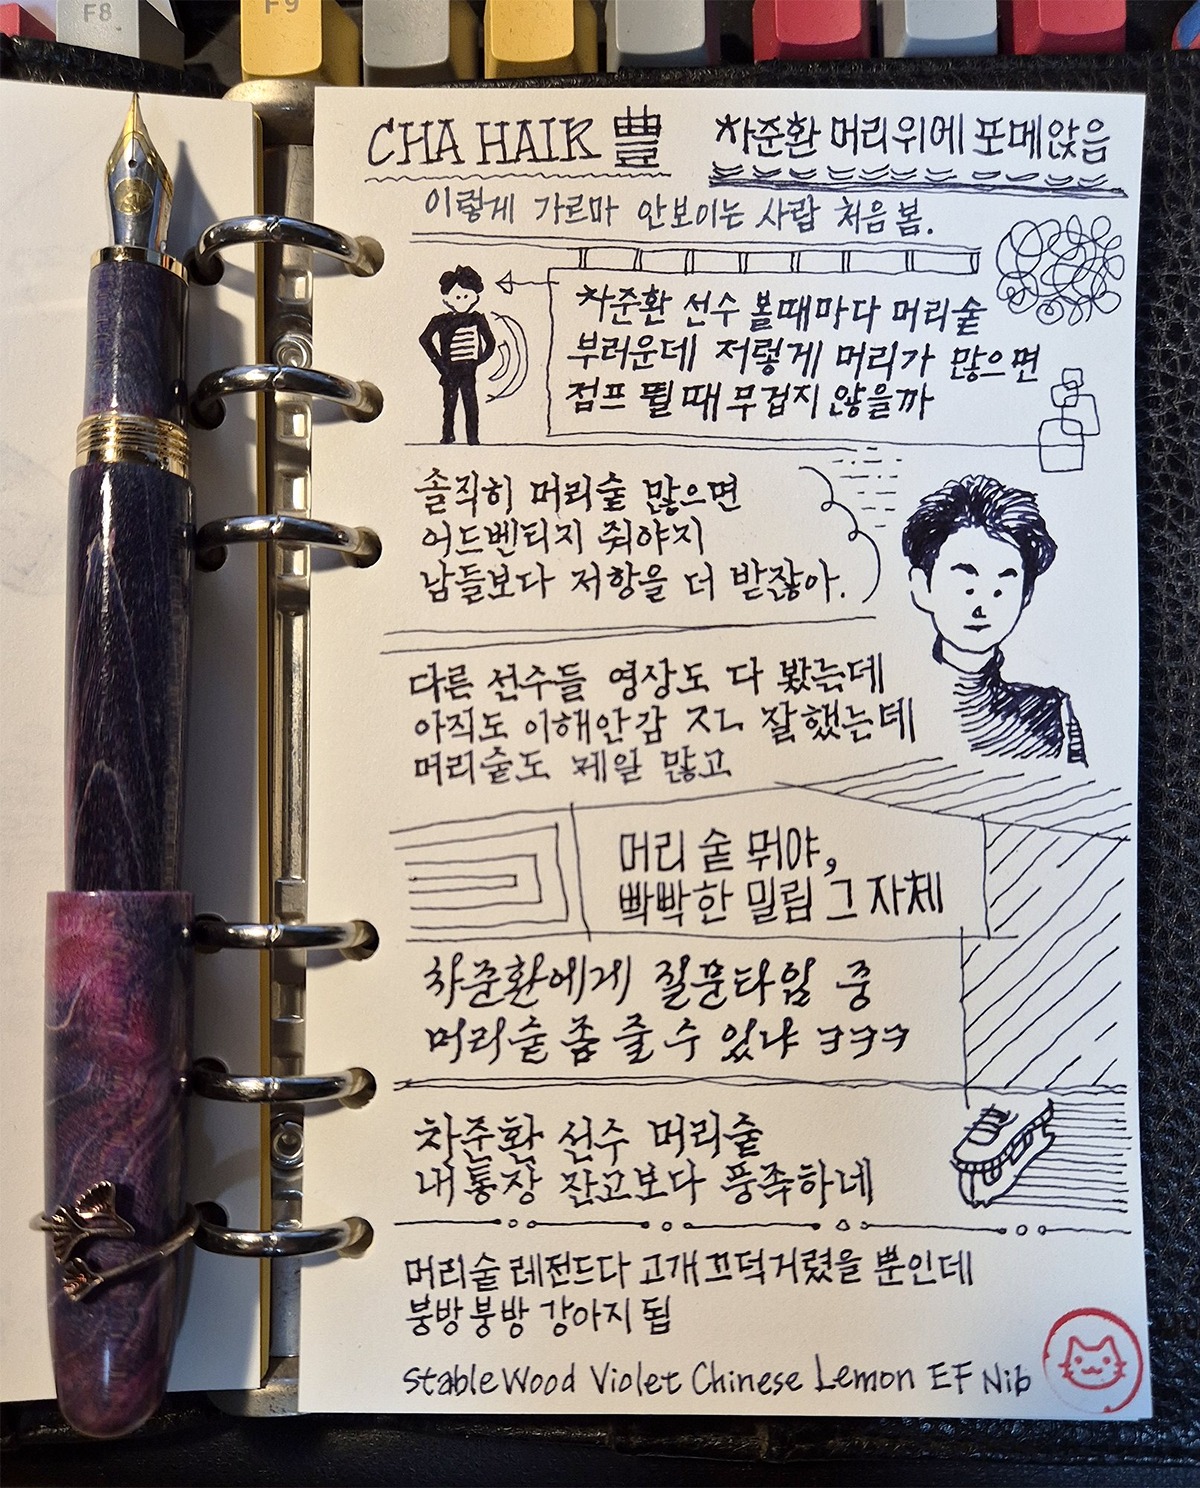 F8
F9
CHA HAIR 豊
차준환 머리위에 포메앉음
이렇게 가르마 안보이는 사람 처음봄.
차준환 선수 볼때마다 머리숱
부러운데 저렇게 머리가 많으면
점프 뛸때 무겁지 않을까
솔직히 머리숱 많으면
어드벤티지 줘야지
남들보다 저항을 더 받잖아.
다른 선수들 영상도 다 봤는데
아직도 이해안감 ㅈㄴ 잘했는데
머리숱도 제일 많고
머리 숱 뭐야,
빡빡한 밀림 그 자체
차준환에게 질문타임 중
머리숱 좀 줄 수 있냐 ㅋㅋㅋ
차준환 선수 머리숱
내 통장 잔고보다 풍족하네
머리숱 레전드다 고개 끄덕거렸을 뿐인데
붕방붕방 강아지 됨
Stable Wood Violet Chinese Lemon EF Nib